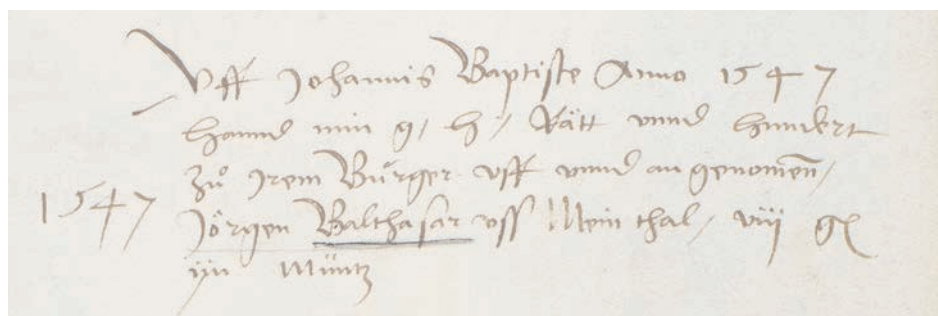 Vff Johannis Baptiste Anno 1547
hannd min g. h. Rätt vnnd hundert
zů jrem Burger vff vnnd an genomen,
1547
Jörgen Balthasar vss Mein thal, viij gl
jn Müntz